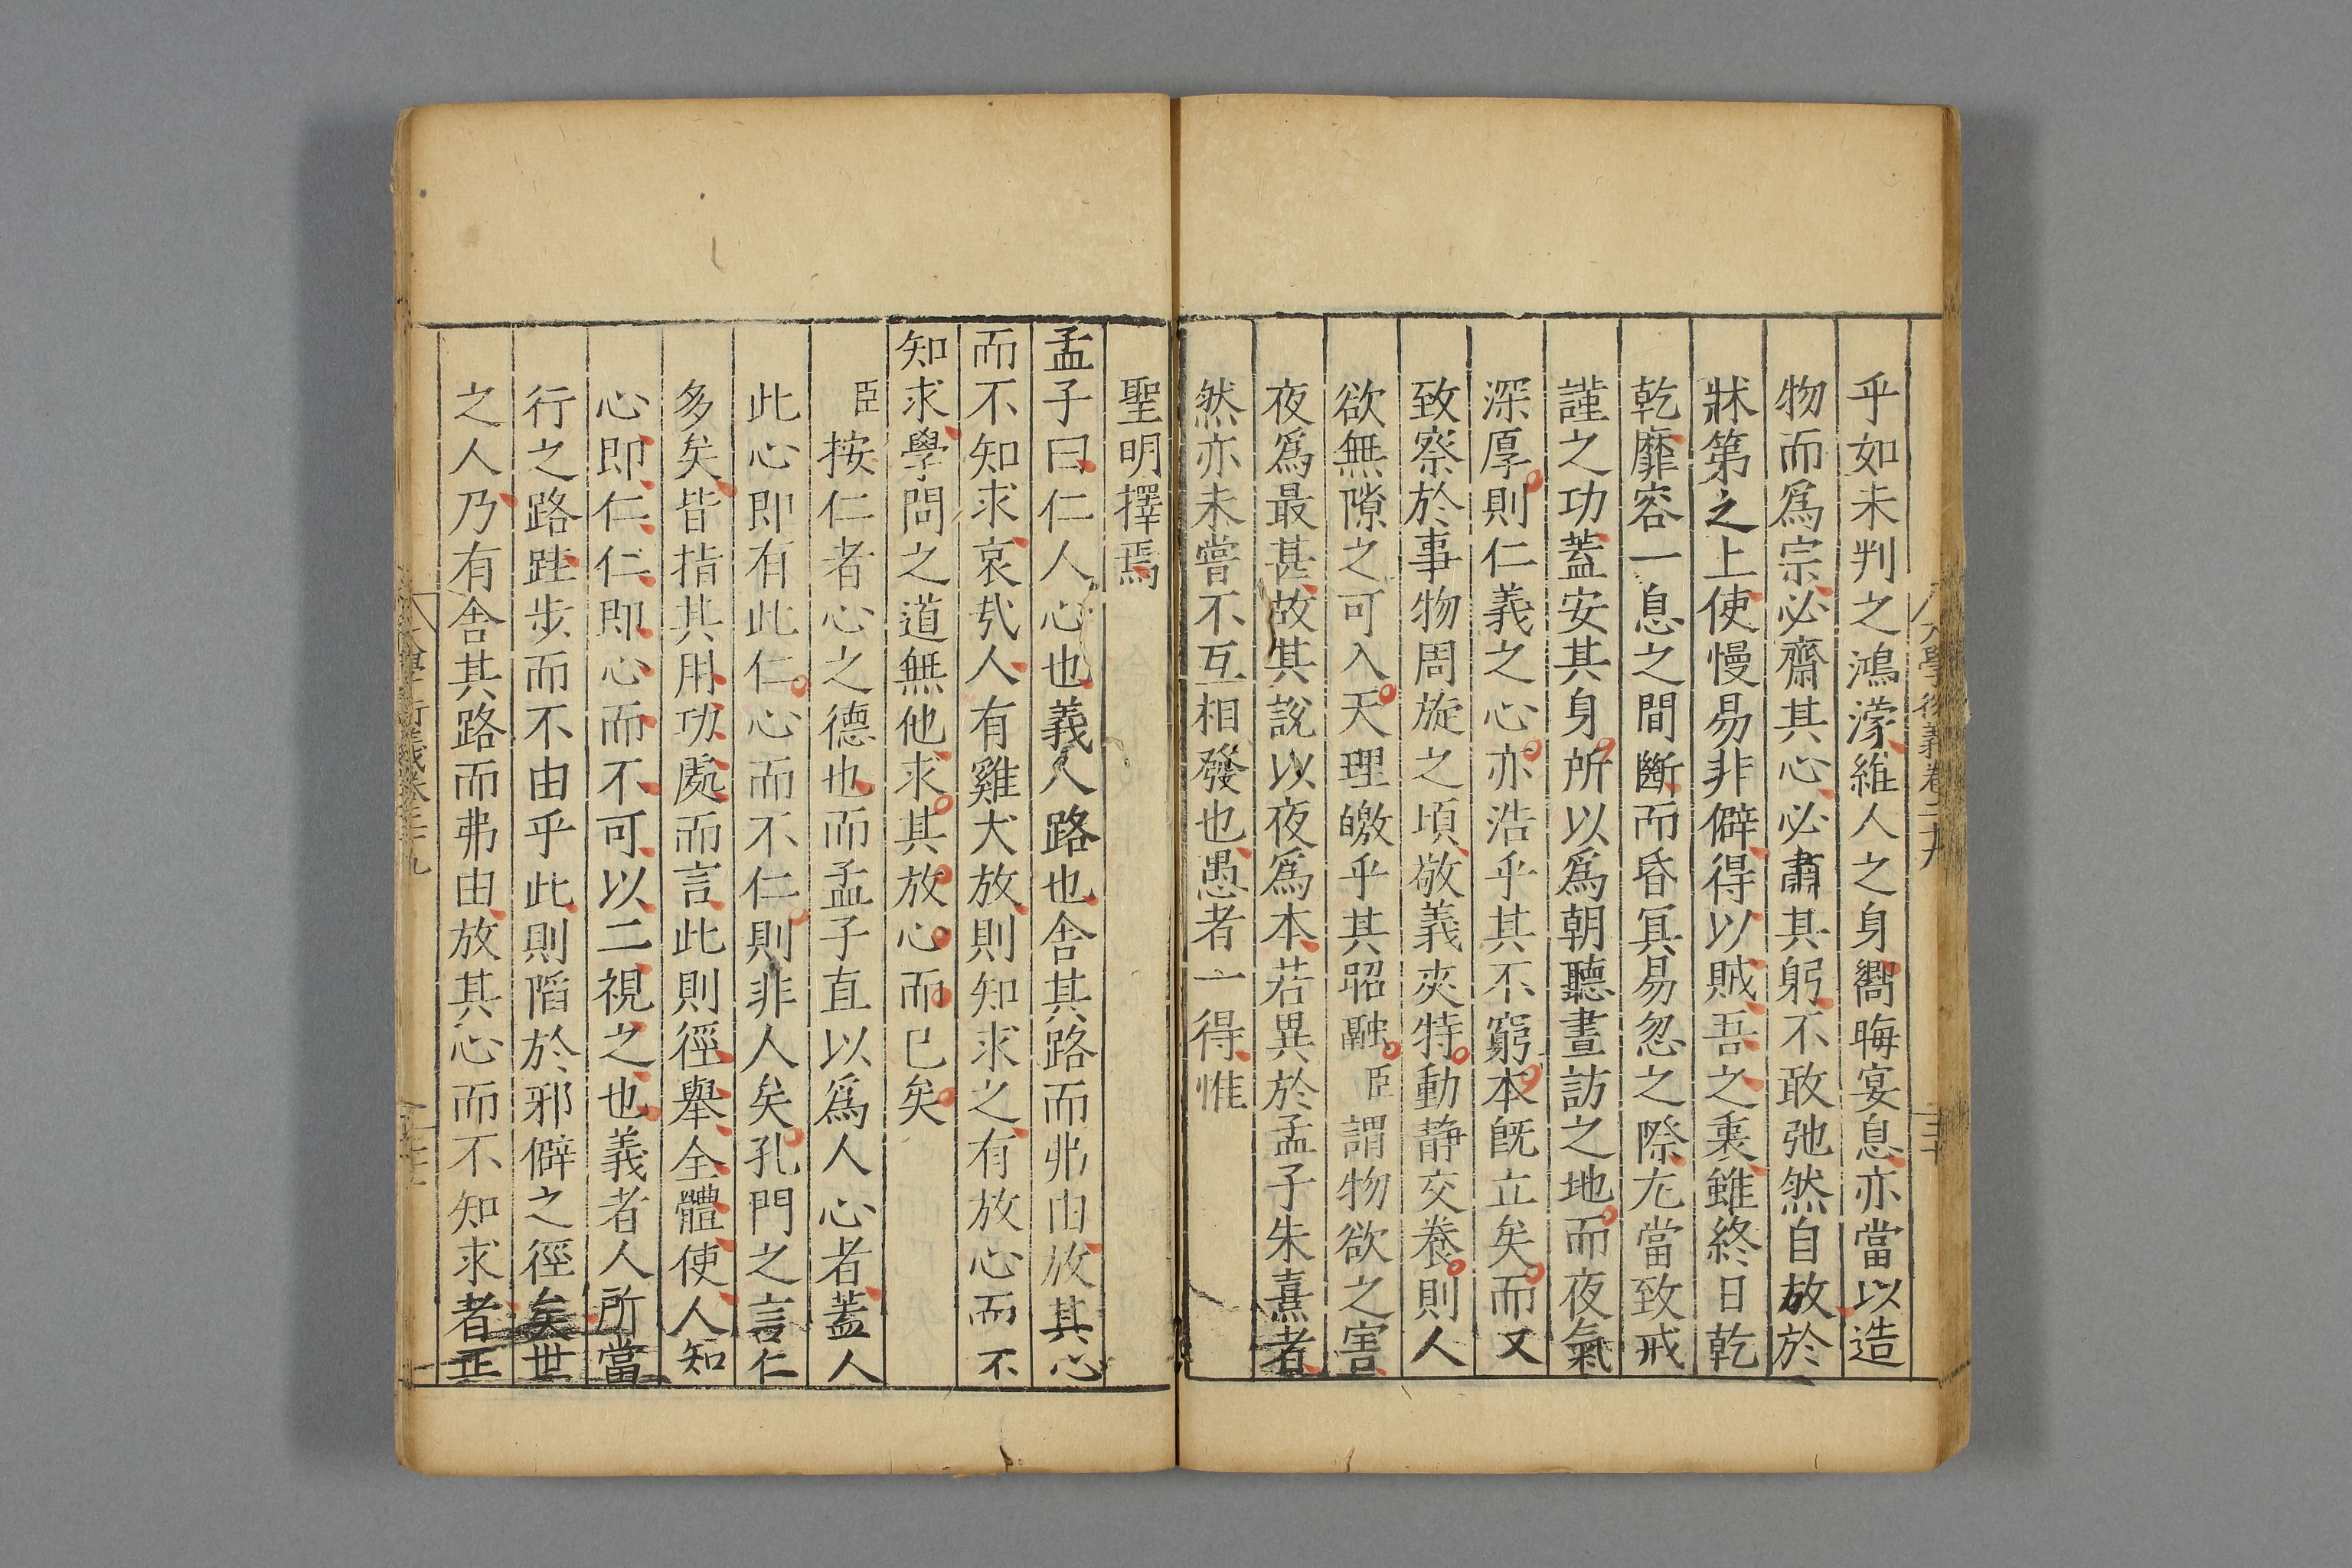 乎如未判之鴻濛維人之身嚮晦宴息亦當以造
物而爲宗必齋其心必肅其躬不敢弛然自放於
牀第之上使慢易非僻得以賊吾之衷雖終日乾
乾靡容一息之間斷而昏冥易忽之際尤當致戒
謹之功蓋安其身所以爲朝聽晝訪之地而夜氣
深厚則仁義之心亦浩乎其不窮本旣立矣而又
致察於事物周旋之頃敬義夾特動静交養則人
欲無隙之可入天理皦乎其昭融臣謂物欲之害
夜爲最甚故其說以夜爲本若異於孟子朱熹者
然亦未嘗不互相發也愚者一得惟
聖明擇焉
孟子曰仁人心也義人路也舍其路而弗由放其心
而不知求哀㢤人有雞犬放則知求之有放心而不
知求學問之道無他求其放心而已矣
臣按仁者心之德也而孟子直以爲人心者蓋人
此心即有此仁心而不仁則非人矣孔門之言仁
多矣皆指其用功處而言此則徑舉全體使人知
心即仁仁即心而不可以二視之也義者人所當
行之路跬步而不由乎此則陷於邪僻之徑矣世
之人乃有舍其路而弗由放其心而不知求者正